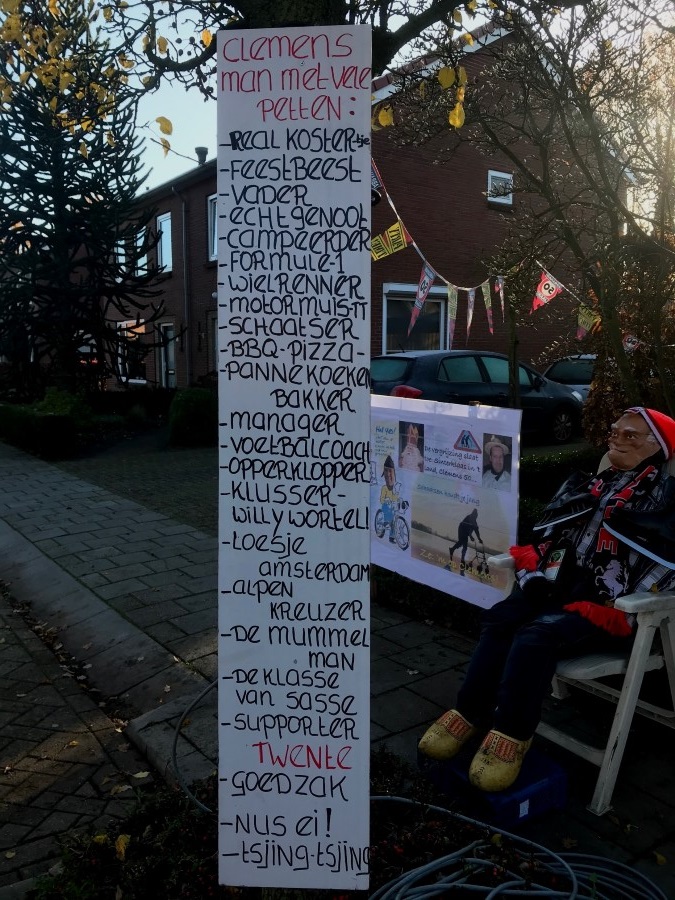 Clemens
man met vele
Petten:
-Real Kostertje
-Feestbeest
-Vader
-echtgenoot
-Campeerder
-Formule-1
-Wielrenner
-Motormuis-TT
-Schaatser
-BBQ-Pizza-
-Pannekoeken
Bakker
-manager
-Voetbalcoach
-opperklopper
-Klusser-
Willy Wortell
-Loesje
amsterdam
-alpen
Kreuzer
-De mummel
man
-De Klasse
van Sasse
-supporter
Twente
-Goedzak
-Nus ei!
-tsjing-tsjing
De vergrijzing slaat
toe. Sinterklaas in 't
land, Clemens 50...
50